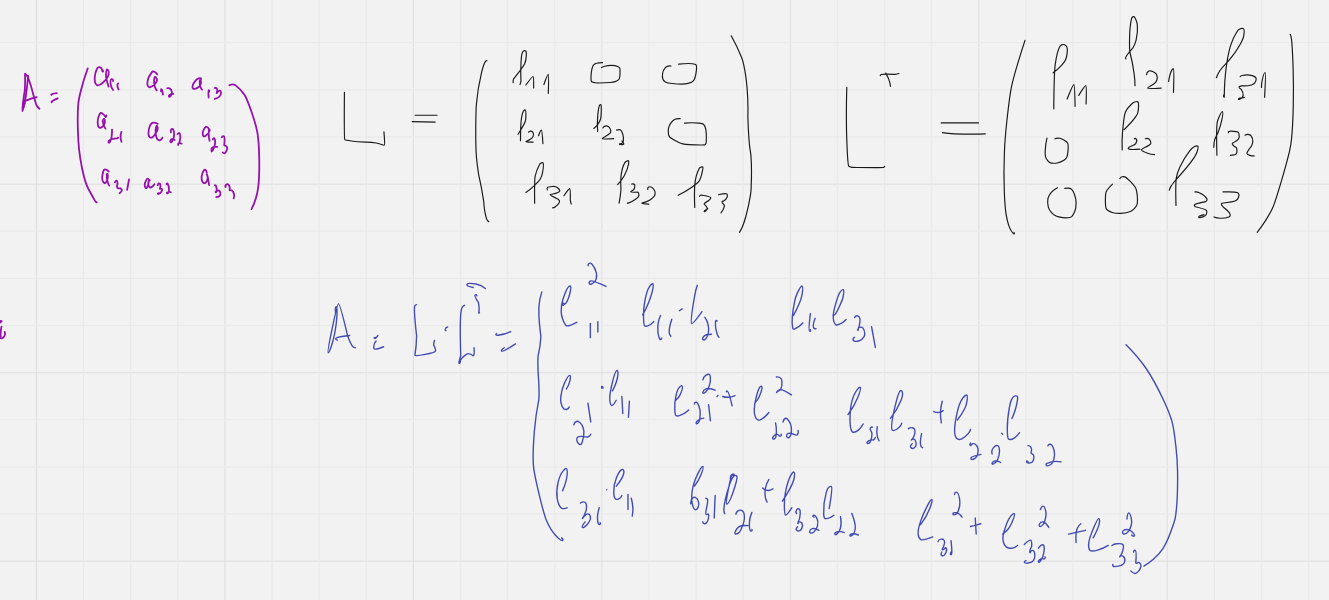 A = ( a₁₁ a₁₂ a₁₃
a₂₁ a₂₂ a₂₃
a₃₁ a₃₂ a₃₃ )
L = ( l₁₁ 0 0
l₂₁ l₂₂ 0
l₃₁ l₃₂ l₃₃ )
Lᵀ = ( l₁₁ l₂₁ l₃₁
0 l₂₂ l₃₂
0 0 l₃₃ )
A = L·Lᵀ = ( l₁₁² l₁₁·l₂₁ l₁₁l₃₁
l₂₁·l₁₁ l₂₁²+l₂₂² l₂₁l₃₁+l₂₂·l₃₂
l₃₁·l₁₁ l₃₁l₂₁+l₃₂l₂₂ l₃₁²+l₃₂²+l₃₃² )